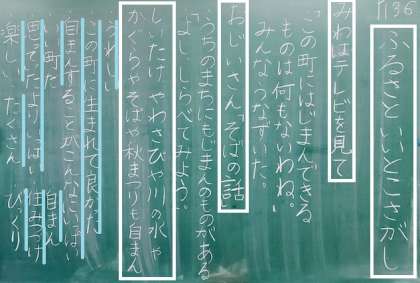 P136
ふるさといいとこさがし
みわはテレビを見て
「この町にはじまんできる
ものは何もないわね。」
みんなうなずいた。
おじいさん「そばの話」
「うちのまちにもじまんのものがある
よ。しらべてみよう。」
しいたけ やわさびや川の水や
かぐらやそばや秋まつりも自まん
うれしい
この町に生まれて良かった
自まんすることがこんなにいっぱい
いい町だ 自まん
思ってたよりいっぱい 住みつづけ
楽しい、たくさん びっくり